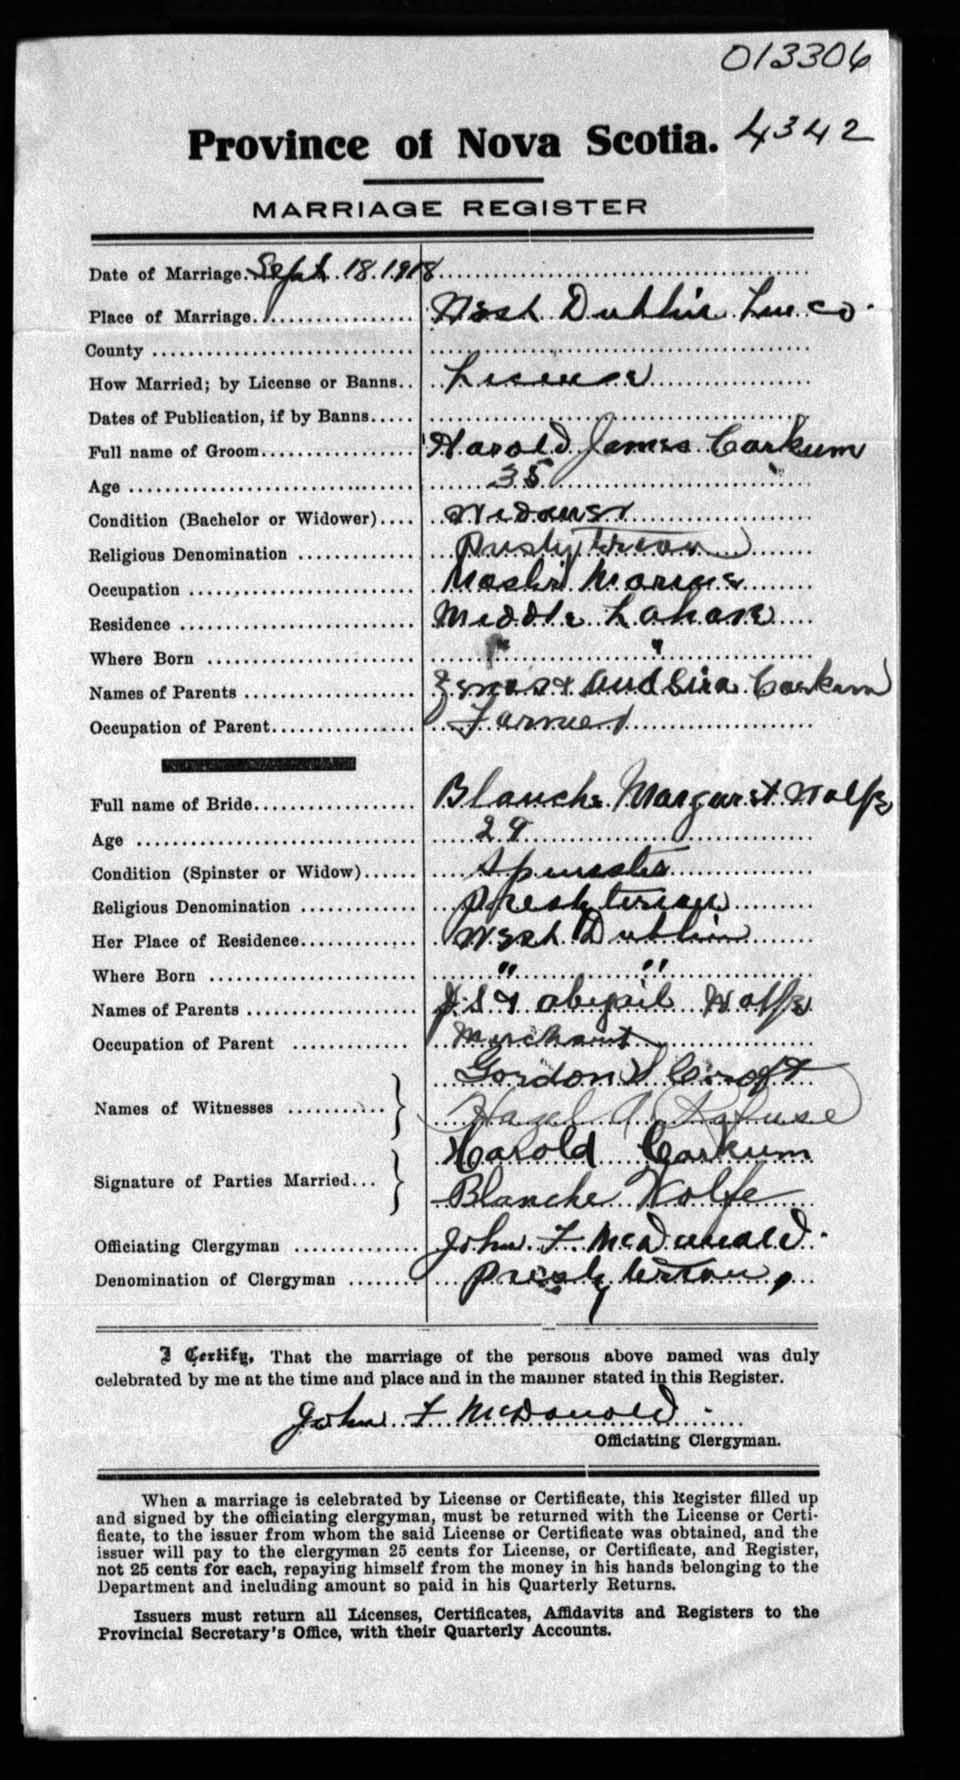 013306
Province of Nova Scotia. 4342
MARRIAGE REGISTER
Date of Marriage. Sept. 18. 1918
Place of Marriage. West Dublin Lun. co.
County
How Married; by License or Banns.. License
Dates of Publication, if by Banns.....
Full name of Groom Harold James Corkum
Age 35
Condition (Bachelor or Widower).... Widower
Religious Denomination Presbyterian
Occupation Master Mariner
Residence Middle Lahave
Where Born " "
Names of Parents & Corkum
Occupation of Parent Farmer
Full name of Bride Blanche Margaret Wolfe
Age 29
Condition (Spinster or Widow) Spinster
Religious Denomination Presbyterian
Her Place of Residence West Dublin
Where Born " "
Names of Parents J S & Abigail Wolfe
Occupation of Parent Merchant
Gordon Croft
Names of Witnesses }
Hazel A. Rafuse
Harold Corkum
Signature of Parties Married... }
Blanche Wolfe
Officiating Clergyman John F McDonald.
Denomination of Clergyman Presbyterian,
I Certify, That the marriage of the persons above named was duly
celebrated by me at the time and place and in the manner stated in this Register.
John F McDonald
Officiating Clergyman.
When a marriage is celebrated by License or Certificate, this Register filled up
and signed by the officiating clergyman, must be returned with the License or Certi-
ficate, to the issuer from whom the said License or Certificate was obtained, and the
issuer will pay to the clergyman 25 cents for License, or Certificate, and Register,
not 25 cents for each, repaying himself from the money in his hands belonging to the
Department and including amount so paid in his Quarterly Returns.
Issuers must return all Licenses, Certificates, Affidavits and Registers to the
Provincial Secretary's Office, with their Quarterly Accounts.